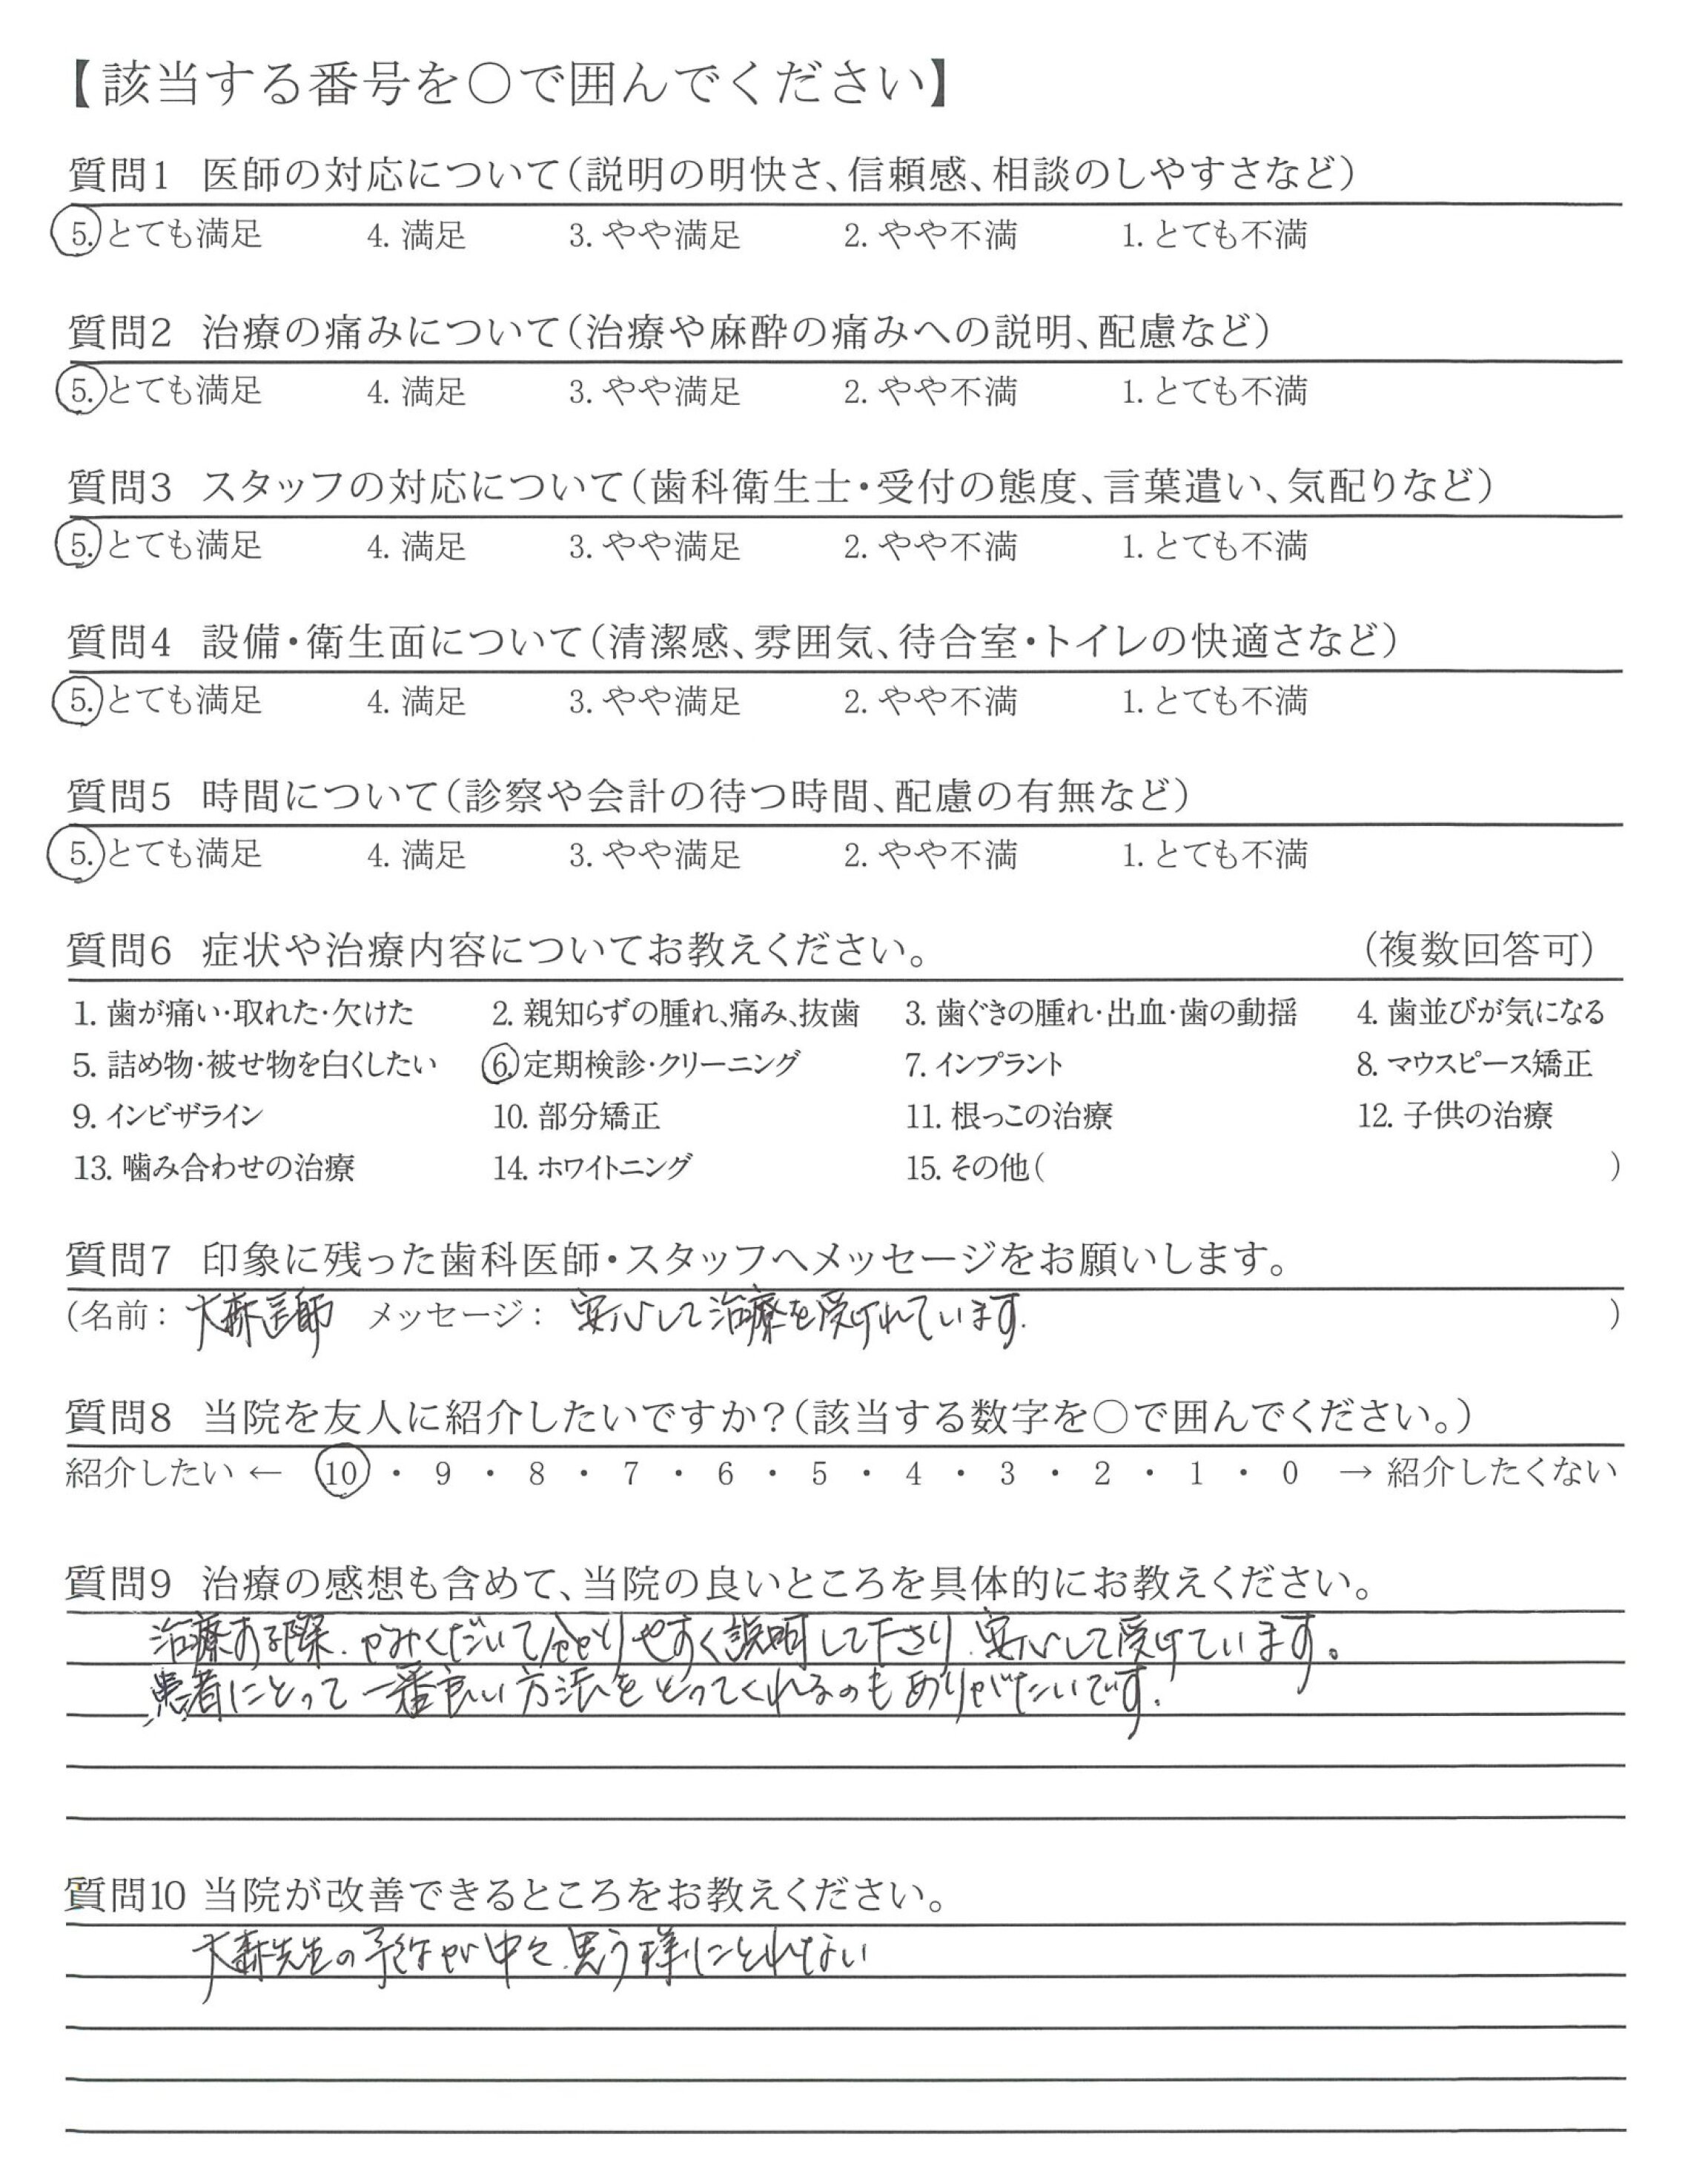 【該当する番号を○で囲んでください】
質問1 医師の対応について(説明の明快さ、信頼感、相談のしやすさなど)
5. とても満足 4. 満足 3. やや満足 2. やや不満 1. とても不満
質問2 治療の痛みについて(治療や麻酔の痛みへの説明、配慮など)
5. とても満足 4. 満足 3. やや満足 2. やや不満 1. とても不満
質問3 スタッフの対応について(歯科衛生士・受付の態度、言葉遣い、気配りなど)
5. とても満足 4. 満足 3. やや満足 2. やや不満 1. とても不満
質問4 設備・衛生面について(清潔感、雰囲気、待合室・トイレの快適さなど)
5. とても満足 4. 満足 3. やや満足 2. やや不満 1. とても不満
質問5 時間について(診察や会計の待つ時間、配慮の有無など)
5. とても満足 4. 満足 3. やや満足 2. やや不満 1. とても不満
質問6 症状や治療内容についてお教えください。 (複数回答可)
1. 歯が痛い・取れた・欠けた 2. 親知らずの腫れ、痛み、抜歯 3. 歯ぐきの腫れ・出血・歯の動揺 4. 歯並びが気になる
5. 詰め物・被せ物を白くしたい 6. 定期検診・クリーニング 7. インプラント 8. マウスピース矯正
9. インビザライン 10. 部分矯正 11. 根っこの治療 12. 子供の治療
13. 噛み合わせの治療 14. ホワイトニング 15. その他( )
質問7 印象に残った歯科医師・スタッフへメッセージをお願いします。
(名前: 大森医師 メッセージ: 安心して治療を受けれています. )
質問8 当院を友人に紹介したいですか?(該当する数字を○で囲んでください。)
紹介したい ← 10 ・ 9 ・ 8 ・ 7 ・ 6 ・ 5 ・ 4 ・ 3 ・ 2 ・ 1 ・ 0 → 紹介したくない
質問9 治療の感想も含めて、当院の良いところを具体的にお教えください。
治療する際、かみくだいて分かりやすく説明して下さり、安心して受けています。
患者にとって一番良い方法をとってくれるのもありがたいです.
質問10 当院が改善できるところをお教えください。
大森先生の予約が中々、思う様にとれない